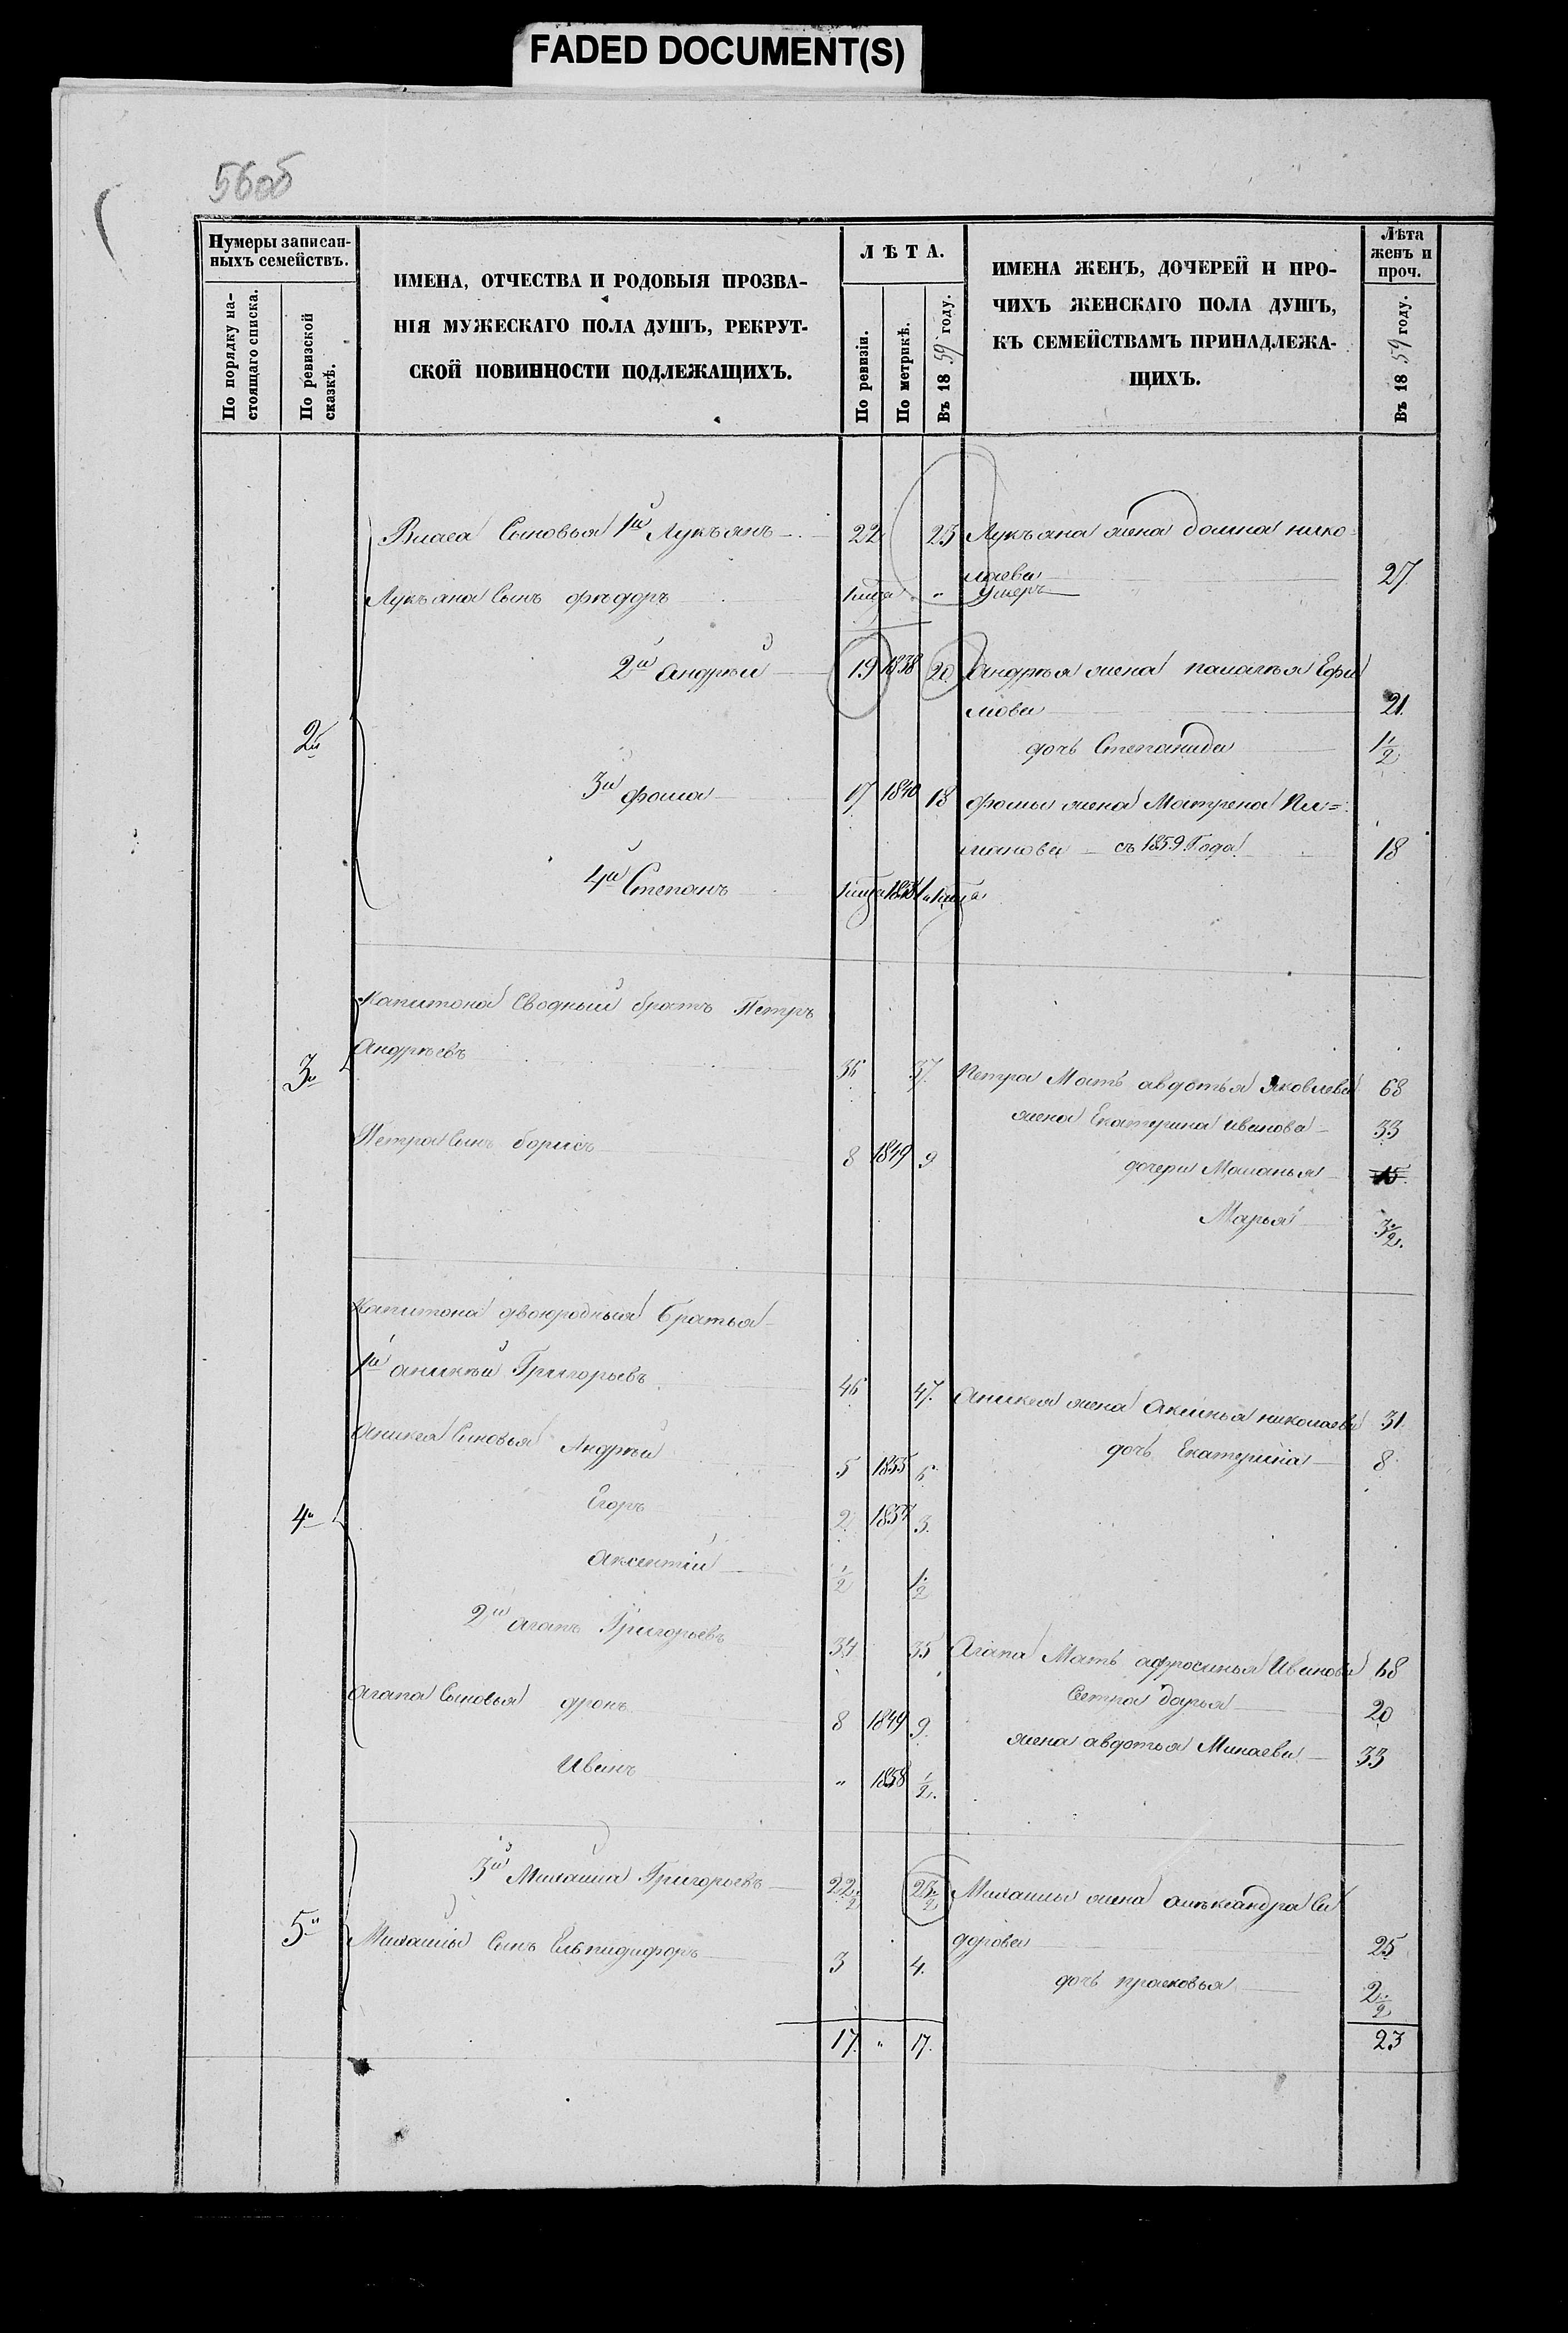 FADED DOCUMENT(S)
56об
Нумеры записан-
ныхъ семействъ.
По порядку на-
стоящаго списка.
По ревизской
сказкѣ.
ИМЕНА, ОТЧЕСТВА И РОДОВЫЯ ПРОЗВА-
НІЯ МУЖЕСКАГО ПОЛА ДУШЪ, РЕКРУТ-
СКОЙ ПОВИННОСТИ ПОДЛЕЖАЩИХЪ.
ЛѢТА.
По ревизіи.
По метрикѣ.
Въ 1859 году.
ИМЕНА ЖЕНЪ, ДОЧЕРЕЙ И ПРО-
ЧИХЪ ЖЕНСКАГО ПОЛА ДУШЪ,
КЪ СЕМЕЙСТВАМЪ ПРИНАДЛЕЖА-
ЩИХЪ.
Лѣта
женъ и
проч.
Въ 1859 году.
Власа Сыновья 1й Лукъянъ 22 23 Лукъяна жена домна нико-
лаева 27
Лукъяна Сынъ фѣдоръ " умеръ
2й Андрѣй 19 1838 20 Андрѣя жена палагѣя Ефи
мова 21
2й
дочь Степанида 1 1/2
3й фома 17 1840 18 фомы жена Матрена
съ 1859 Года 18
4й Степанъ
Капитона Сводный братъ Петръ
Андрѣевъ 36 37 Петра Мать авдотья Яковлева 68
3й
жена Екатерина иванова 33
Петра Сынъ борисъ 8 1849 9
дочери Маланья 15
Марья 3 1/2
Капитона двоюродныя братья
1й аникѣй Григорьевъ 46 47 Аникея жена Аксинья николаева 31
Аникея Сыновья Андрѣй 5 1855 6 дочь Екатерина 8
Егоръ 2 1857 3
4й
Аксентій 1/2 1 1/2
2й агапъ Григорьевъ 34 35 Агапа Мать афросинья Иванова 68
Сестра дарья 20
Агапа Сыновья дронъ 8 1849 9
жена авдотья Минаева 33
Иванъ " 1858 1/2
3й Малашка Григорьевъ 22 1/2 23 1/2 жена александра Си
дорова 25
5й
Сынъ Елпидифоръ 3 4
дочь прасковья 2 1/2
17 " 17 23